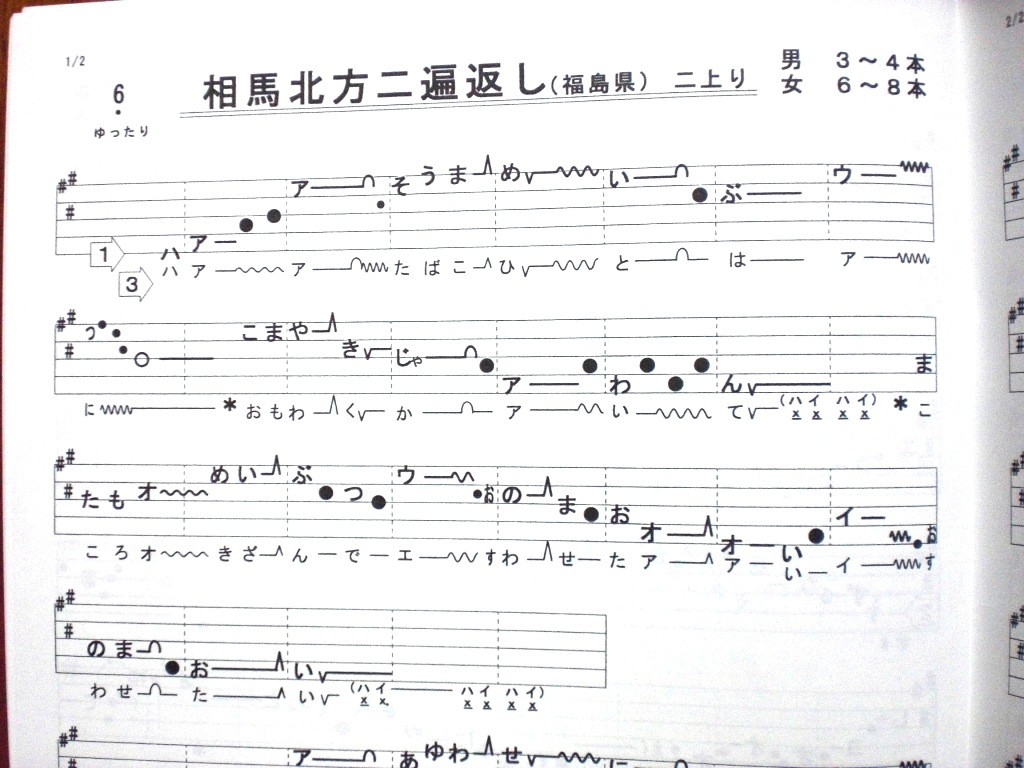 1/2
2/2
6
ゆったり
相馬北方二遍返し(福島県) 二上り
男 3～4本
女 6～8本
ア そ う ま め い ぶ ウ
1 ハ ア
3 ハ ア ア た ば こ ひ と は ア
つ こ ま や き じゃ ア わ ん ま
に * お も わ く か ア い て (ハイ ハイ) * こ
た も オ め い ぶ つ ウ お の ま お オ オ い イ お
こ ろ オ き ざ ん で エ す わ せ た ア ア い イ す
の ま お い
わ せ た い (ハイ ハイ ハイ)
ア あ ゆ わ せ に